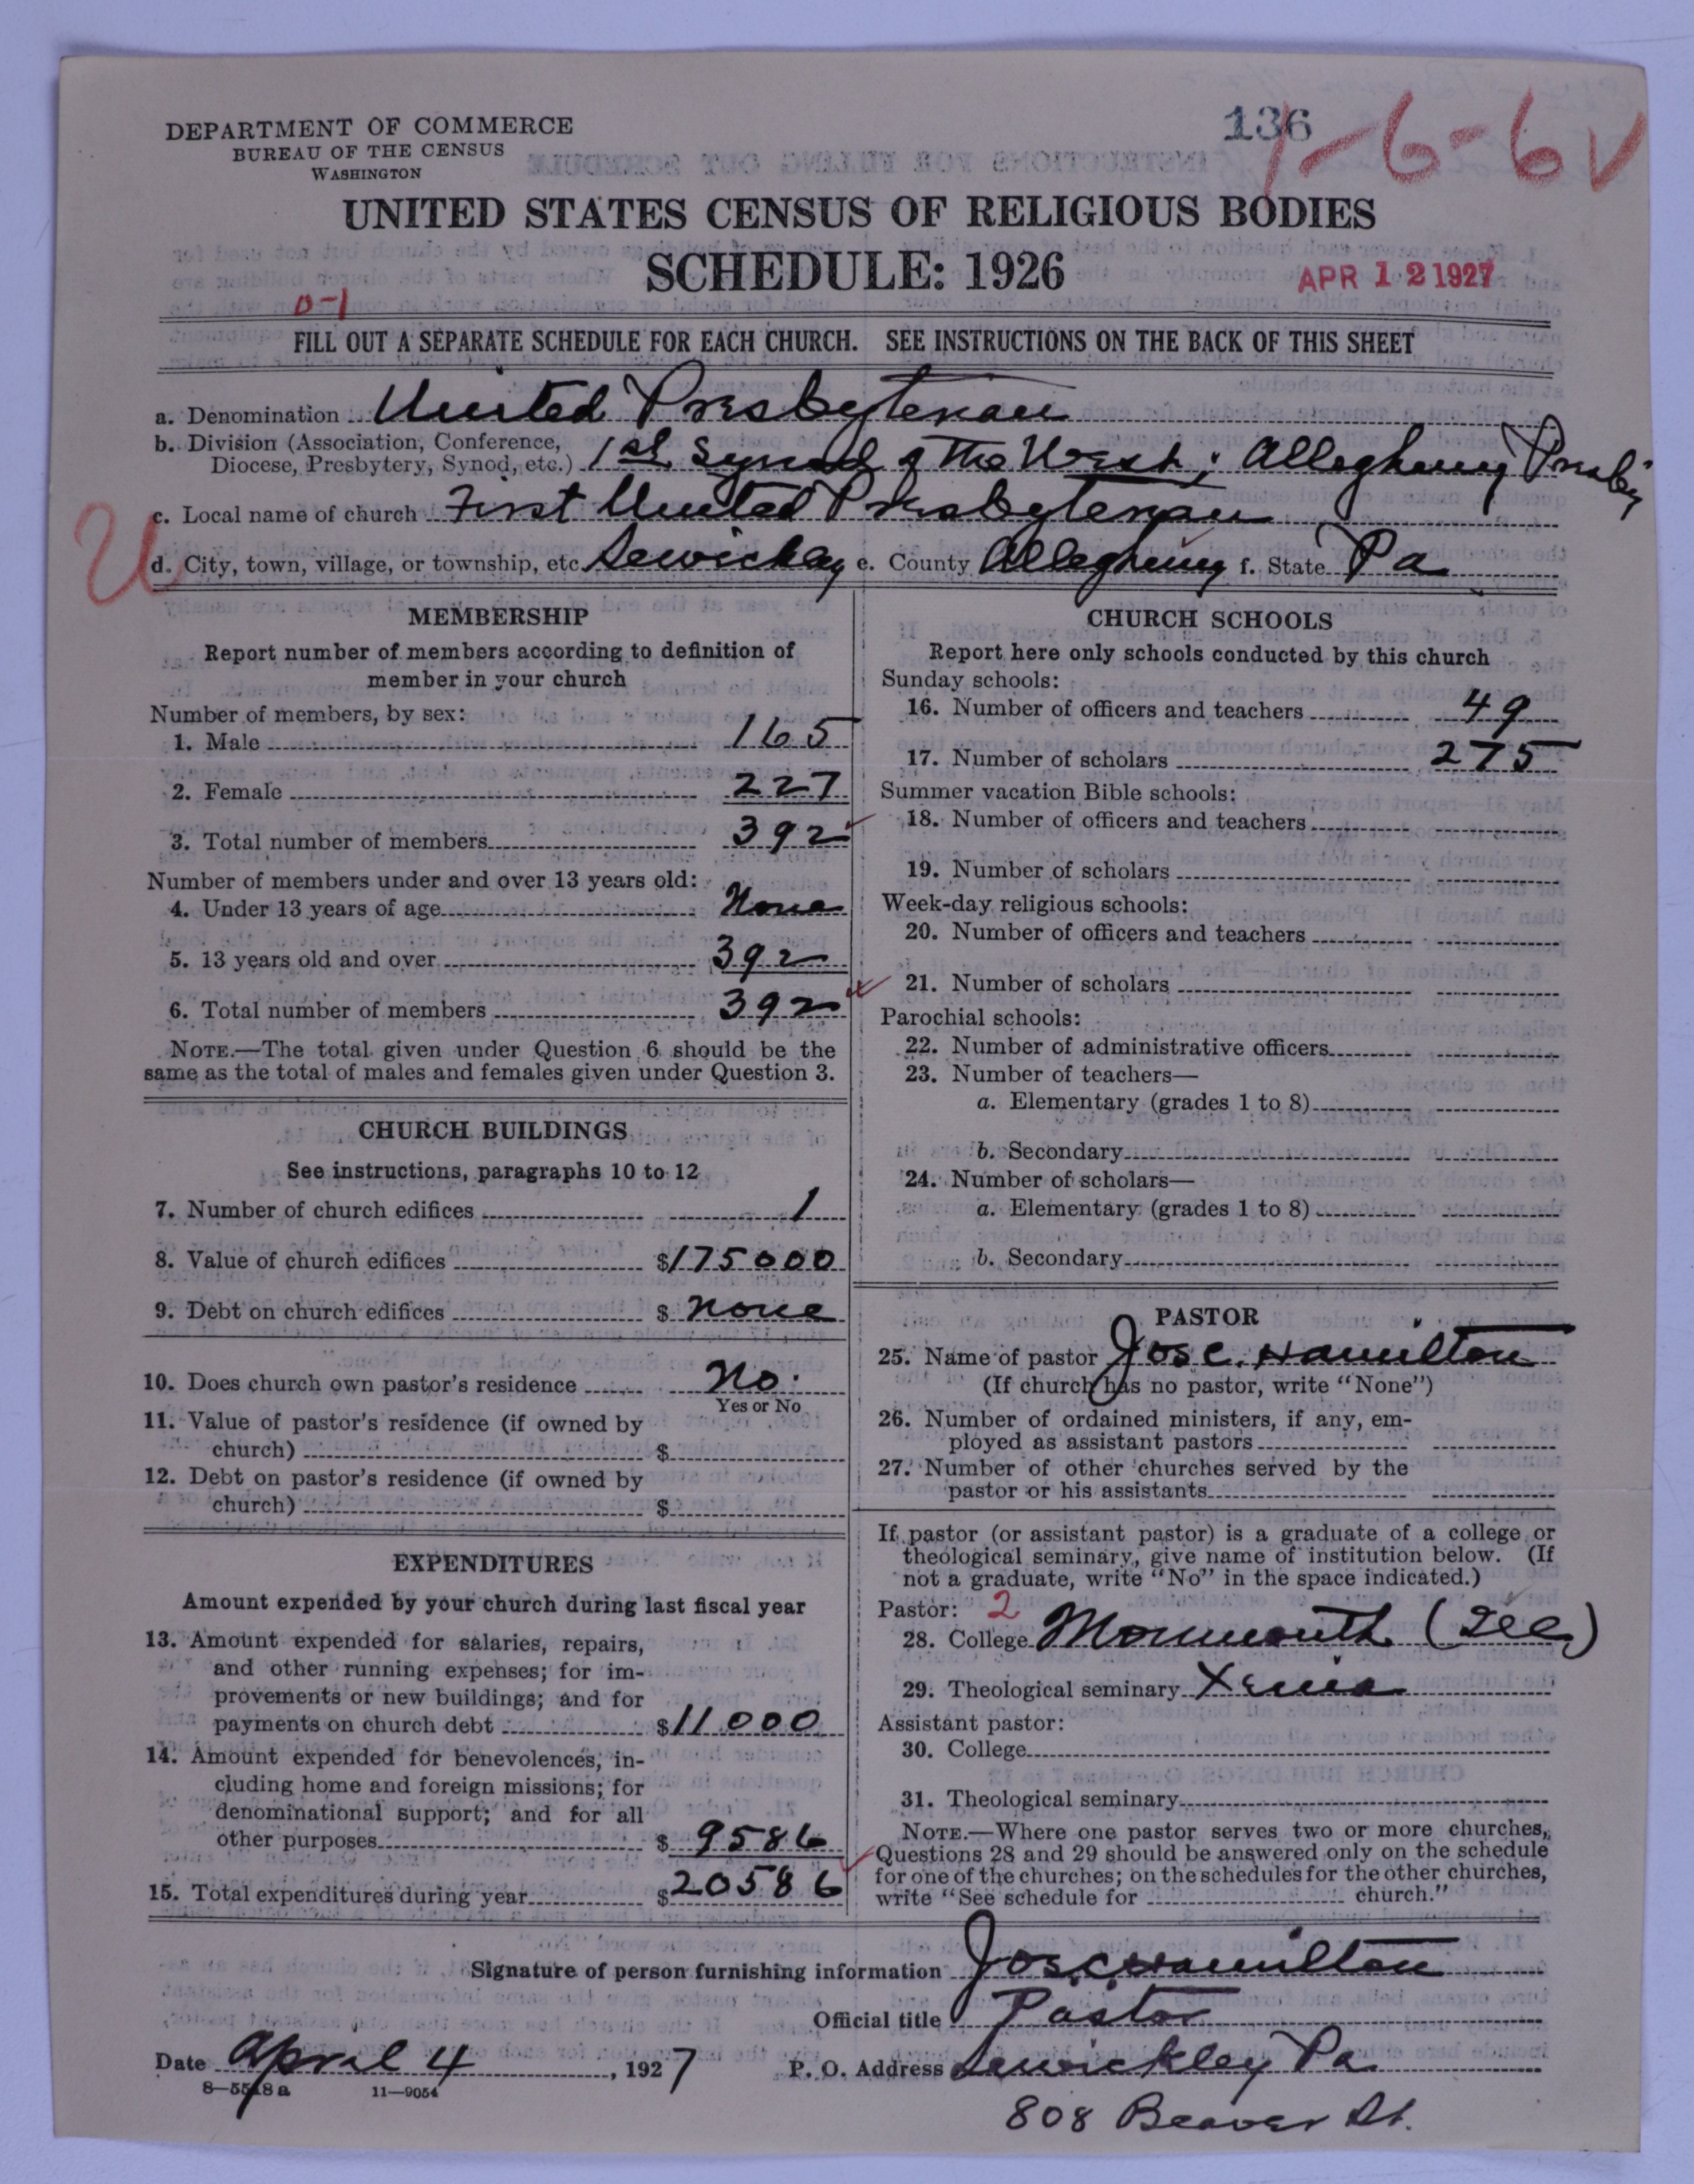 DEPARTMENT OF COMMERCE
BUREAU OF THE CENSUS
WASHINGTON
136
1-6-6 V
UNITED STATES CENSUS OF RELIGIOUS BODIES
SCHEDULE: 1926
APR 12 1927
0-1
FILL OUT A SEPARATE SCHEDULE FOR EACH CHURCH. SEE INSTRUCTIONS ON THE BACK OF THIS SHEET
a. Denomination United Presbyterian
b. Division (Association, Conference,
Diocese, Presbytery, Synod, etc.) 1st Synod of the West; Allegheny Presby
c. Local name of church First United Presbyterian
U
d. City, town, village, or township, etc. Sewickley e. County Allegheny f. State Pa
MEMBERSHIP
Report number of members according to definition of
member in your church
Number of members, by sex:
1. Male 165
2. Female 227
3. Total number of members 392
Number of members under and over 13 years old:
4. Under 13 years of age None
5. 13 years old and over 392
6. Total number of members 392
NOTE.—The total given under Question 6 should be the
same as the total of males and females given under Question 3.
CHURCH BUILDINGS
See instructions, paragraphs 10 to 12
7. Number of church edifices 1
8. Value of church edifices $175000
9. Debt on church edifices $ None
10. Does church own pastor's residence No.
Yes or No
11. Value of pastor's residence (if owned by
church) $
12. Debt on pastor's residence (if owned by
church) $
EXPENDITURES
Amount expended by your church during last fiscal year
13. Amount expended for salaries, repairs,
and other running expenses; for im-
provements or new buildings; and for
payments on church debt $11000
14. Amount expended for benevolences, in-
cluding home and foreign missions; for
denominational support; and for all
other purposes $ 9586
15. Total expenditures during year $20586
CHURCH SCHOOLS
Report here only schools conducted by this church
Sunday schools:
16. Number of officers and teachers 49
17. Number of scholars 275
Summer vacation Bible schools:
18. Number of officers and teachers
19. Number of scholars
Week-day religious schools:
20. Number of officers and teachers
21. Number of scholars
Parochial schools:
22. Number of administrative officers
23. Number of teachers—
a. Elementary (grades 1 to 8)
b. Secondary
24. Number of scholars—
a. Elementary (grades 1 to 8)
b. Secondary
PASTOR
25. Name of pastor Jos C. Hamilton
(If church has no pastor, write "None")
26. Number of ordained ministers, if any, em-
ployed as assistant pastors
27. Number of other churches served by the
pastor or his assistants
If pastor (or assistant pastor) is a graduate of a college or
theological seminary, give name of institution below. (If
not a graduate, write "No" in the space indicated.)
Pastor: 2
28. College Monmouth (Ill)
29. Theological seminary Xenia
Assistant pastor:
30. College
31. Theological seminary
NOTE.—Where one pastor serves two or more churches,
Questions 28 and 29 should be answered only on the schedule
for one of the churches; on the schedules for the other churches,
write "See schedule for church."
Signature of person furnishing information Jos. C. Hamilton
Official title Pastor
Date April 4, 1927 P. O. Address Sewickley Pa.
8—5518a 11—9054
808 Beaver St.